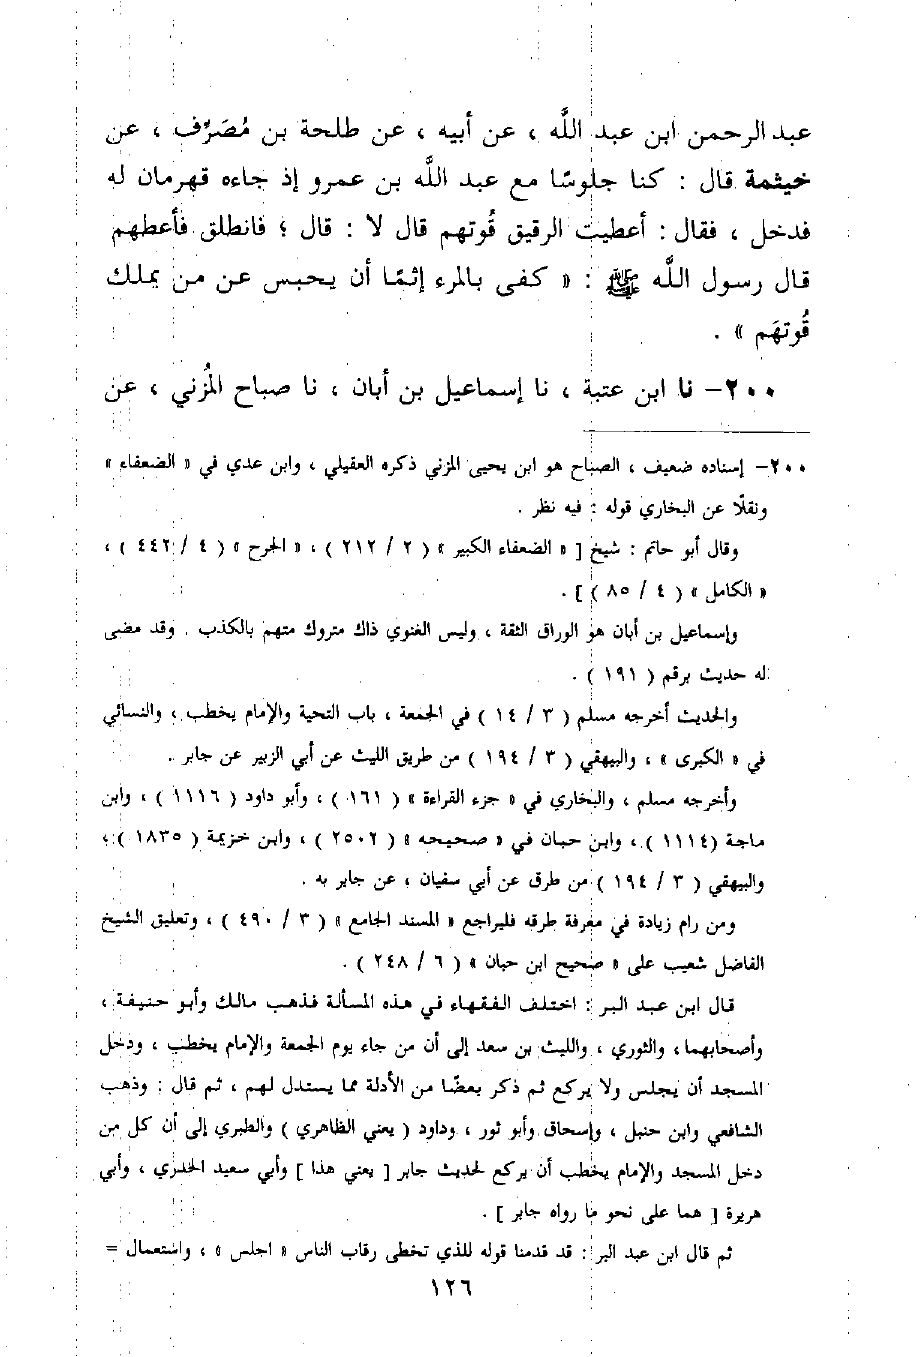 عبد الرحمن ابن عبد اللَّه ، عن أبيه ، عن طلحة بن مُصَرِّف ، عن
خيثمة قال : كنا جلوسًا مع عبد اللَّه بن عمرو إذ جاءه قهرمان له
فدخل ، فقال : أعطيت الرقيق قُوتهم قال لا : قال ؛ فانطلق فأعطهم
قال رسول اللَّه ﷺ : « كفى بالمرء إثمًا أن يحبس عن من يملك
قُوتهَم » .
٢٠٠- نا ابن عتبة ، نا إسماعيل بن أبان ، نا صباح المُزني ، عن
٢٠٠- إسناده ضعيف ، الصباح هو ابن يحيى المزني ذكره العقيلي ، وابن عدي في « الضعفاء »
ونقلًا عن البخاري قوله : فيه نظر .
وقال أبو حاتم : شيخ [ « الضعفاء الكبير » ( ٢ / ٢١٢ ) ، « الجرح » ( ٤ / ٤٤٢ ) ،
« الكامل » ( ٤ / ٨٥ ) ] .
وإسماعيل بن أبان هو الوراق الثقة ، وليس الغنوي ذاك متروك متهم بالكذب . وقد مضى
له حديث برقم ( ١٩١ ) .
والحديث أخرجه مسلم ( ٣ / ١٤ ) في الجمعة ، باب التحية والإمام يخطب ، والنسائي
في « الكبرى » ، والبيهقي ( ٣ / ١٩٤ ) من طريق الليث عن أبي الزبير عن جابر .
وأخرجه مسلم ، والبخاري في « جزء القراءة » ( ١٦١ ) ، وأبو داود ( ١١١٦ ) ، وابن
ماجة ( ١١١٤ ) ، وابن حبان في « صحيحه » ( ٢٥٠٢ ) ، وابن خزيمة ( ١٨٣٥ ) ،
والبيهقي ( ٣ / ١٩٤ ) من طرق عن أبي سفيان ، عن جابر به .
ومن رام زيادة في معرفة طرقه فليراجع « المسند الجامع » ( ٣ / ٤٩٠ ) ، وتعليق الشيخ
الفاضل شعيب على « صحيح ابن حبان » ( ٦ / ٢٤٨ ) .
قال ابن عبد البر : اختلف الفقهاء في هذه المسألة فذهب مالك وأبو حنيفة ،
وأصحابهما ، والثوري ، والليث بن سعد إلى أن من جاء يوم الجمعة والإمام يخطب ، ودخل
المسجد أن يجلس ولا يركع ثم ذكر بعضًا من الأدلة مما يستدل لهم ، ثم قال : وذهب
الشافعي وابن حنبل ، وإسحاق وأبو ثور ، وداود ( يعني الظاهري ) والطبري إلى أن كل من
دخل المسجد والإمام يخطب أن يركع لحديث جابر [ يعني هذا ] وأبي سعيد الخدري ، وأبي
هريرة [ هما على نحو ما رواه جابر ] .
ثم قال ابن عبد البر : قد قدمنا قوله للذي تخطى رقاب الناس « اجلس » ، واستعمال =
١٢٦